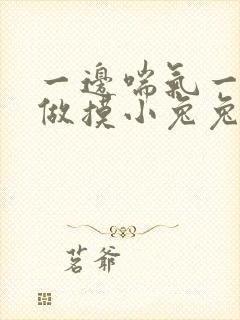 一邊喘氣一
做摸小兔兔
茗爺